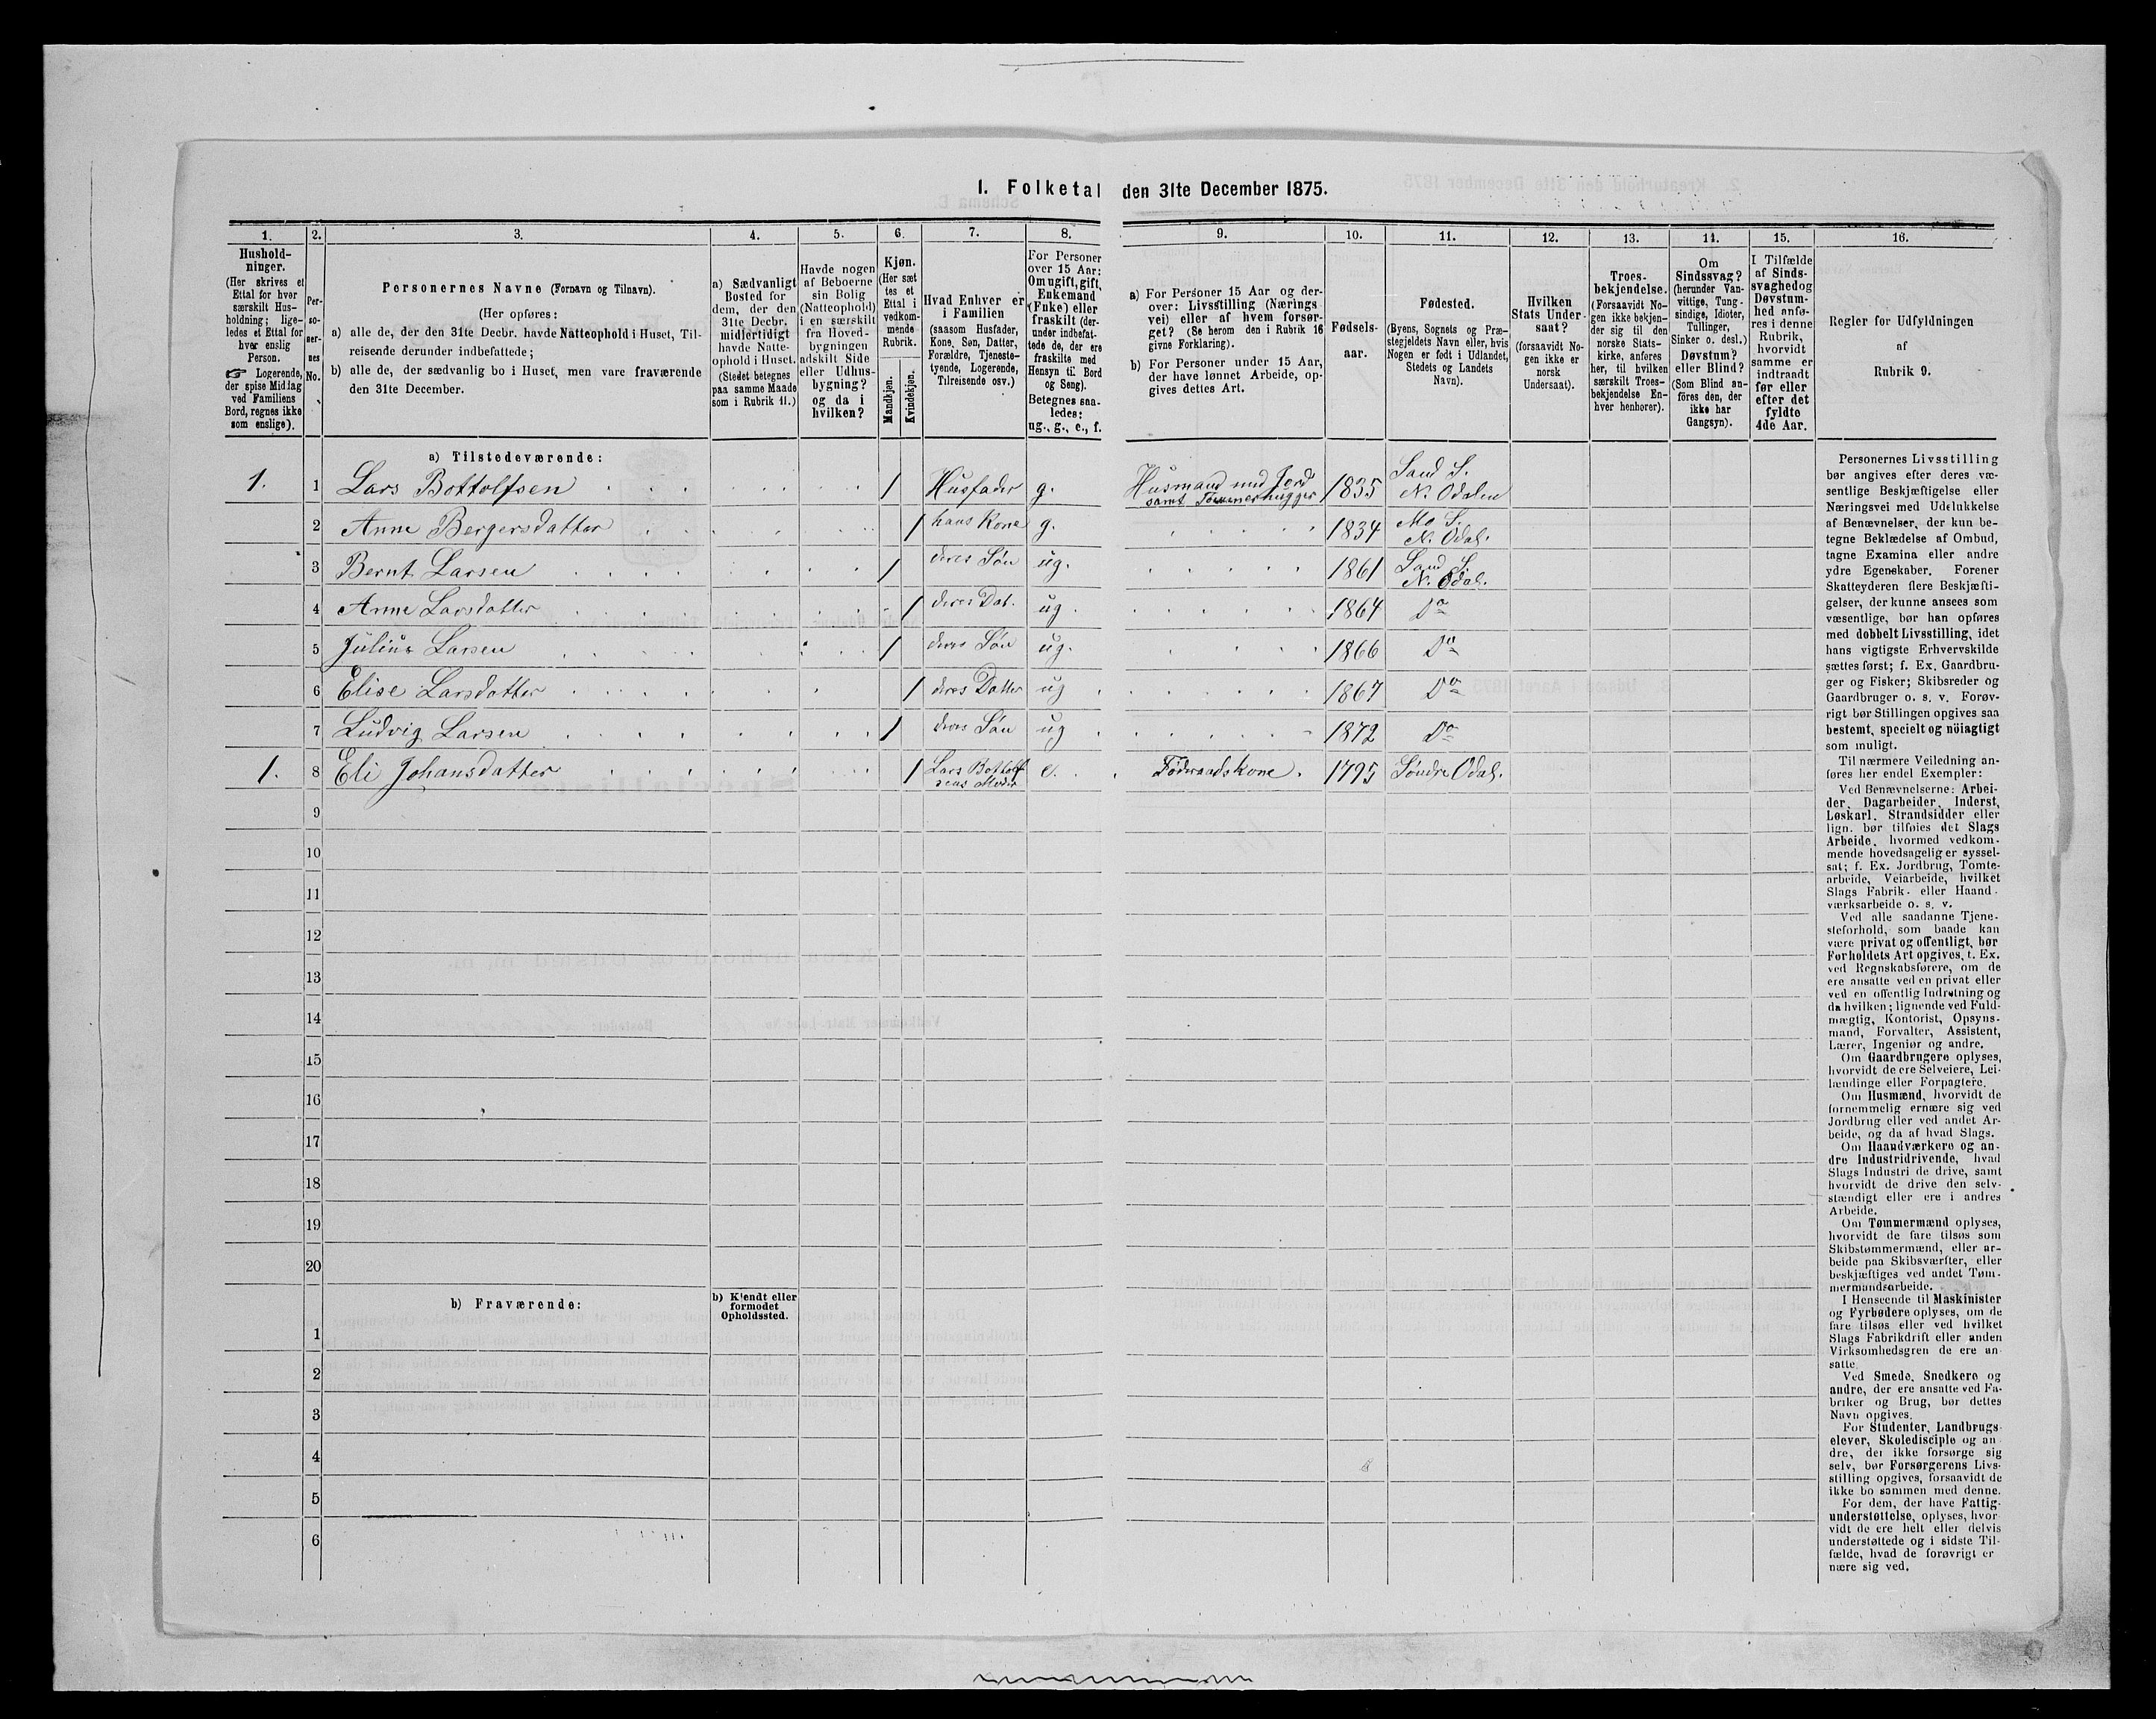 1. Folketal den 31te December 1875.
1.
Hushold-
ninger.
(Her skrives et
Ettal for hver
særskilt Hus-
holdning; lige-
ledes et Ettal for
hver enslig
Person.
☞ Logerende,
der spise Middag
ved Familiens
Bord, regnes ikke
som enslige).
2.
Per-
so-
ner-
nes
No.
3.
Personernes Navne (Fornavn og Tilnavn).
(Her opføres:
a) alle de, der den 31te Decbr. havde Natteophold i Huset, Til-
reisende derunder indbefattede;
b) alle de, der sædvanlig bo i Huset, men vare fraværende
den 31te December.
4.
a) Sædvanligt
Bosted for
dem, der den
31te Decbr.
midlertidigt
havde Natte-
ophold i Huset.
(Stedet betegnes
paa samme Maade
som i Rubrik 11.)
5.
Havde nogen
af Beboerne
sin Bolig
(Natteophold)
i en særskilt
fra Hoved-
bygningen
adskilt Side
eller Udhus-
bygning?
og da i
hvilken?
6.
Kjøn.
(Her sæt
tes et
Ettal i
vedkom-
mende
Rubrik.
Mandkjøn.
Kvindekjøn.
7.
Hvad Enhver er
i Familien
(saasom Husfader,
Kone, Søn, Datter,
Forældre, Tjeneste-
tyende, Logerende,
Tilreisende osv.)
8.
For Personer
over 15 Aar:
Om ugift, gift,
Enkemand
(Enke) eller
fraskilt (der-
under indbefat-
tede de, der ere
fraskilte med
Hensyn til Bord
og Seng).
Betegnes saa-
ledes:
ug., g., e., f.
9.
a) For Personer 15 Aar og der-
over: Livsstilling (Nærings
vei) eller af hvem forsør-
get? (Se herom den i Rubrik 16
givne Forklaring).
b) For Personer under 15 Aar,
der have lønnet Arbeide, op-
gives dettes Art.
10.
Fødsels-
aar.
11.
Fødested.
(Byens, Sognets og Præ-
stegjeldets Navn eller, hvis
Nogen er født i Udlandet,
Stedets og Landets
Navn).
12.
Hvilken
Stats Under-
saat?
(forsaavidt No-
gen ikke er
norsk
Undersaat).
13.
Troes-
bekjendelse.
(Forsaavidt No-
gen ikke bekjen-
der sig til den
norske Stats-
kirke, anføres
her, til hvilken
særskilt Troes-
bekjendelse En-
hver henhorer).
14.
Om
Sindssvag?
(herunder Van-
vittige, Tung-
sindige, Idioter,
Tullinger,
Sinker o. desl.)
Døvstum?
eller Blind?
(Som Blind an-
föres den, der
ikke har
Gangsyn).
15.
I Tilfælde
af Sinds-
svaghed og
Døvstum-
hed anfø-
res i denne
Rubrik,
hvorvidt
samme er
indtraadt
før eller
efter det
fyldte
4de Aar.
16.
Regler for Udfyldningen
af
Rubrik 9.
a) Tilstedeværende:
1. 1 Lars Bottolfsen 1 Husfader g. Husmand med Jord samt Tømmerhugger 1835 Sand S. N. Odalen
2 Anne Bergersdatter 1 hans Kone g. 1834 Mo S. N. Odal.
3 Bernt Larsen 1 deres Søn ug. 1861 Sand S. N. Odal.
4 Anne Larsdatter 1 deres Dat. ug. 1864 Do
5 Julius Larsen 1 deres Søn ug. 1866 Do
6 Elise Larsdatter 1 deres Datter ug 1867 Do
7 Ludvig Larsen 1 deres Søn ug 1872 Do
1. 8 Eli Johansdatter 1 Lars Bottolfsens Moder e. Föderaadskone. 1795 Søndre Odal.
9
10
11
12
13
14
15
16
17
18
19
20
b) Fraværende:
b) Kjendt eller
formodet
Opholdssted.
1
2
3
4
5
6
Personernes Livsstilling
bør angives efter deres væ-
sentlige Beskjæftigelse eller
Næringsvei med Udelukkelse
af Benævnelser, der kun be-
tegne Beklædelse af Ombud,
tagne Examina eller andre
ydre Egenskaber. Forener
Skatteyderen flere Beskjæfti-
gelser, der kunne ansees som
væsentlige, bør han opføres
med dobbelt Livsstilling, idet
hans vigtigste Erhvervskilde
sættes først; f. Ex. Gaardbru-
ger og Fisker; Skibsreder og
Gaardbruger o. s. v. Forøv-
rigt bør Stillingen opgives saa
bestemt, specielt og nöiagtigt
som muligt.
Til nærmere Veiledning an-
føres her endel Exempler:
Ved Benævnelserne: Arbei-
der, Dagarbeider, Inderst,
Løskarl, Strandsidder eller
lign. bør tilføies det Slags
Arbeide, hvormed vedkom-
mende hovedsagelig er syssel-
sat; f. Ex. Jordbrug, Tomte-
arbeide, Veiarbeide, hvilket
Slags Fabrik- eller Haand-
værksarbeide o. s. v.
Ved alle saadanne Tjene-
steforhold, som baade kan
være privat og offentligt, bør
Forholdets Art opgives, t. Ex.
ved Regnskabsførere, om de
ere ansatte ved en privat eller
ved en offentlig Indretning og
da hvilken; lignende ved Fuld-
mægtig, Kontorist, Opsyns-
mand, Forvalter, Assistent,
Lærer, Ingeniør og andre.
Om Gaardbrugere oplyses,
hvorvidt de ere Selveiere, Lei-
lændinge eller Forpagtere.
Om Husmænd, hvorvidt de
fornemmelig ernære sig ved
Jordbrug eller ved andet Ar-
beide, og da af hvad Slags.
Om Haandværkere og an-
dre Industridrivende, hvad
Slags Industri de drive, samt
hvorvidt de drive den selv-
stændigt eller ere i andres
Arbeide.
Om Tømmermænd oplyses,
hvorvidt de fare tilsøs som
Skibstømmermænd, eller ar-
beide paa Skibsværfter, eller
beskjæftiges ved andet Tøm-
mermandsarbeide.
I Henseende til Maskinister
og Fyrbødere oplyses, om de
fare tilsøs eller ved hvilket
Slags Fabrikdrift eller anden
Virksomhedsgren de ere an-
satte.
Ved Smede, Snedkere og
andre, der ere ansatte ved Fa-
briker og Brug, bør dettes
Navn opgives.
For Studenter, Landbrugs
elever, Skoledisciple og an
dre, der ikke forsørge sig
selv, bør Forsørgerens Livs-
stilling opgives, forsaavidt de
ikke bo sammen med denne.
For dem, der have Fattig-
understøttelse, oplyses, hvor-
vidt de ere helt eller delvis
understøttede og i sidste Til-
fælde, hvad de forøvrigt er
nære sig ved.